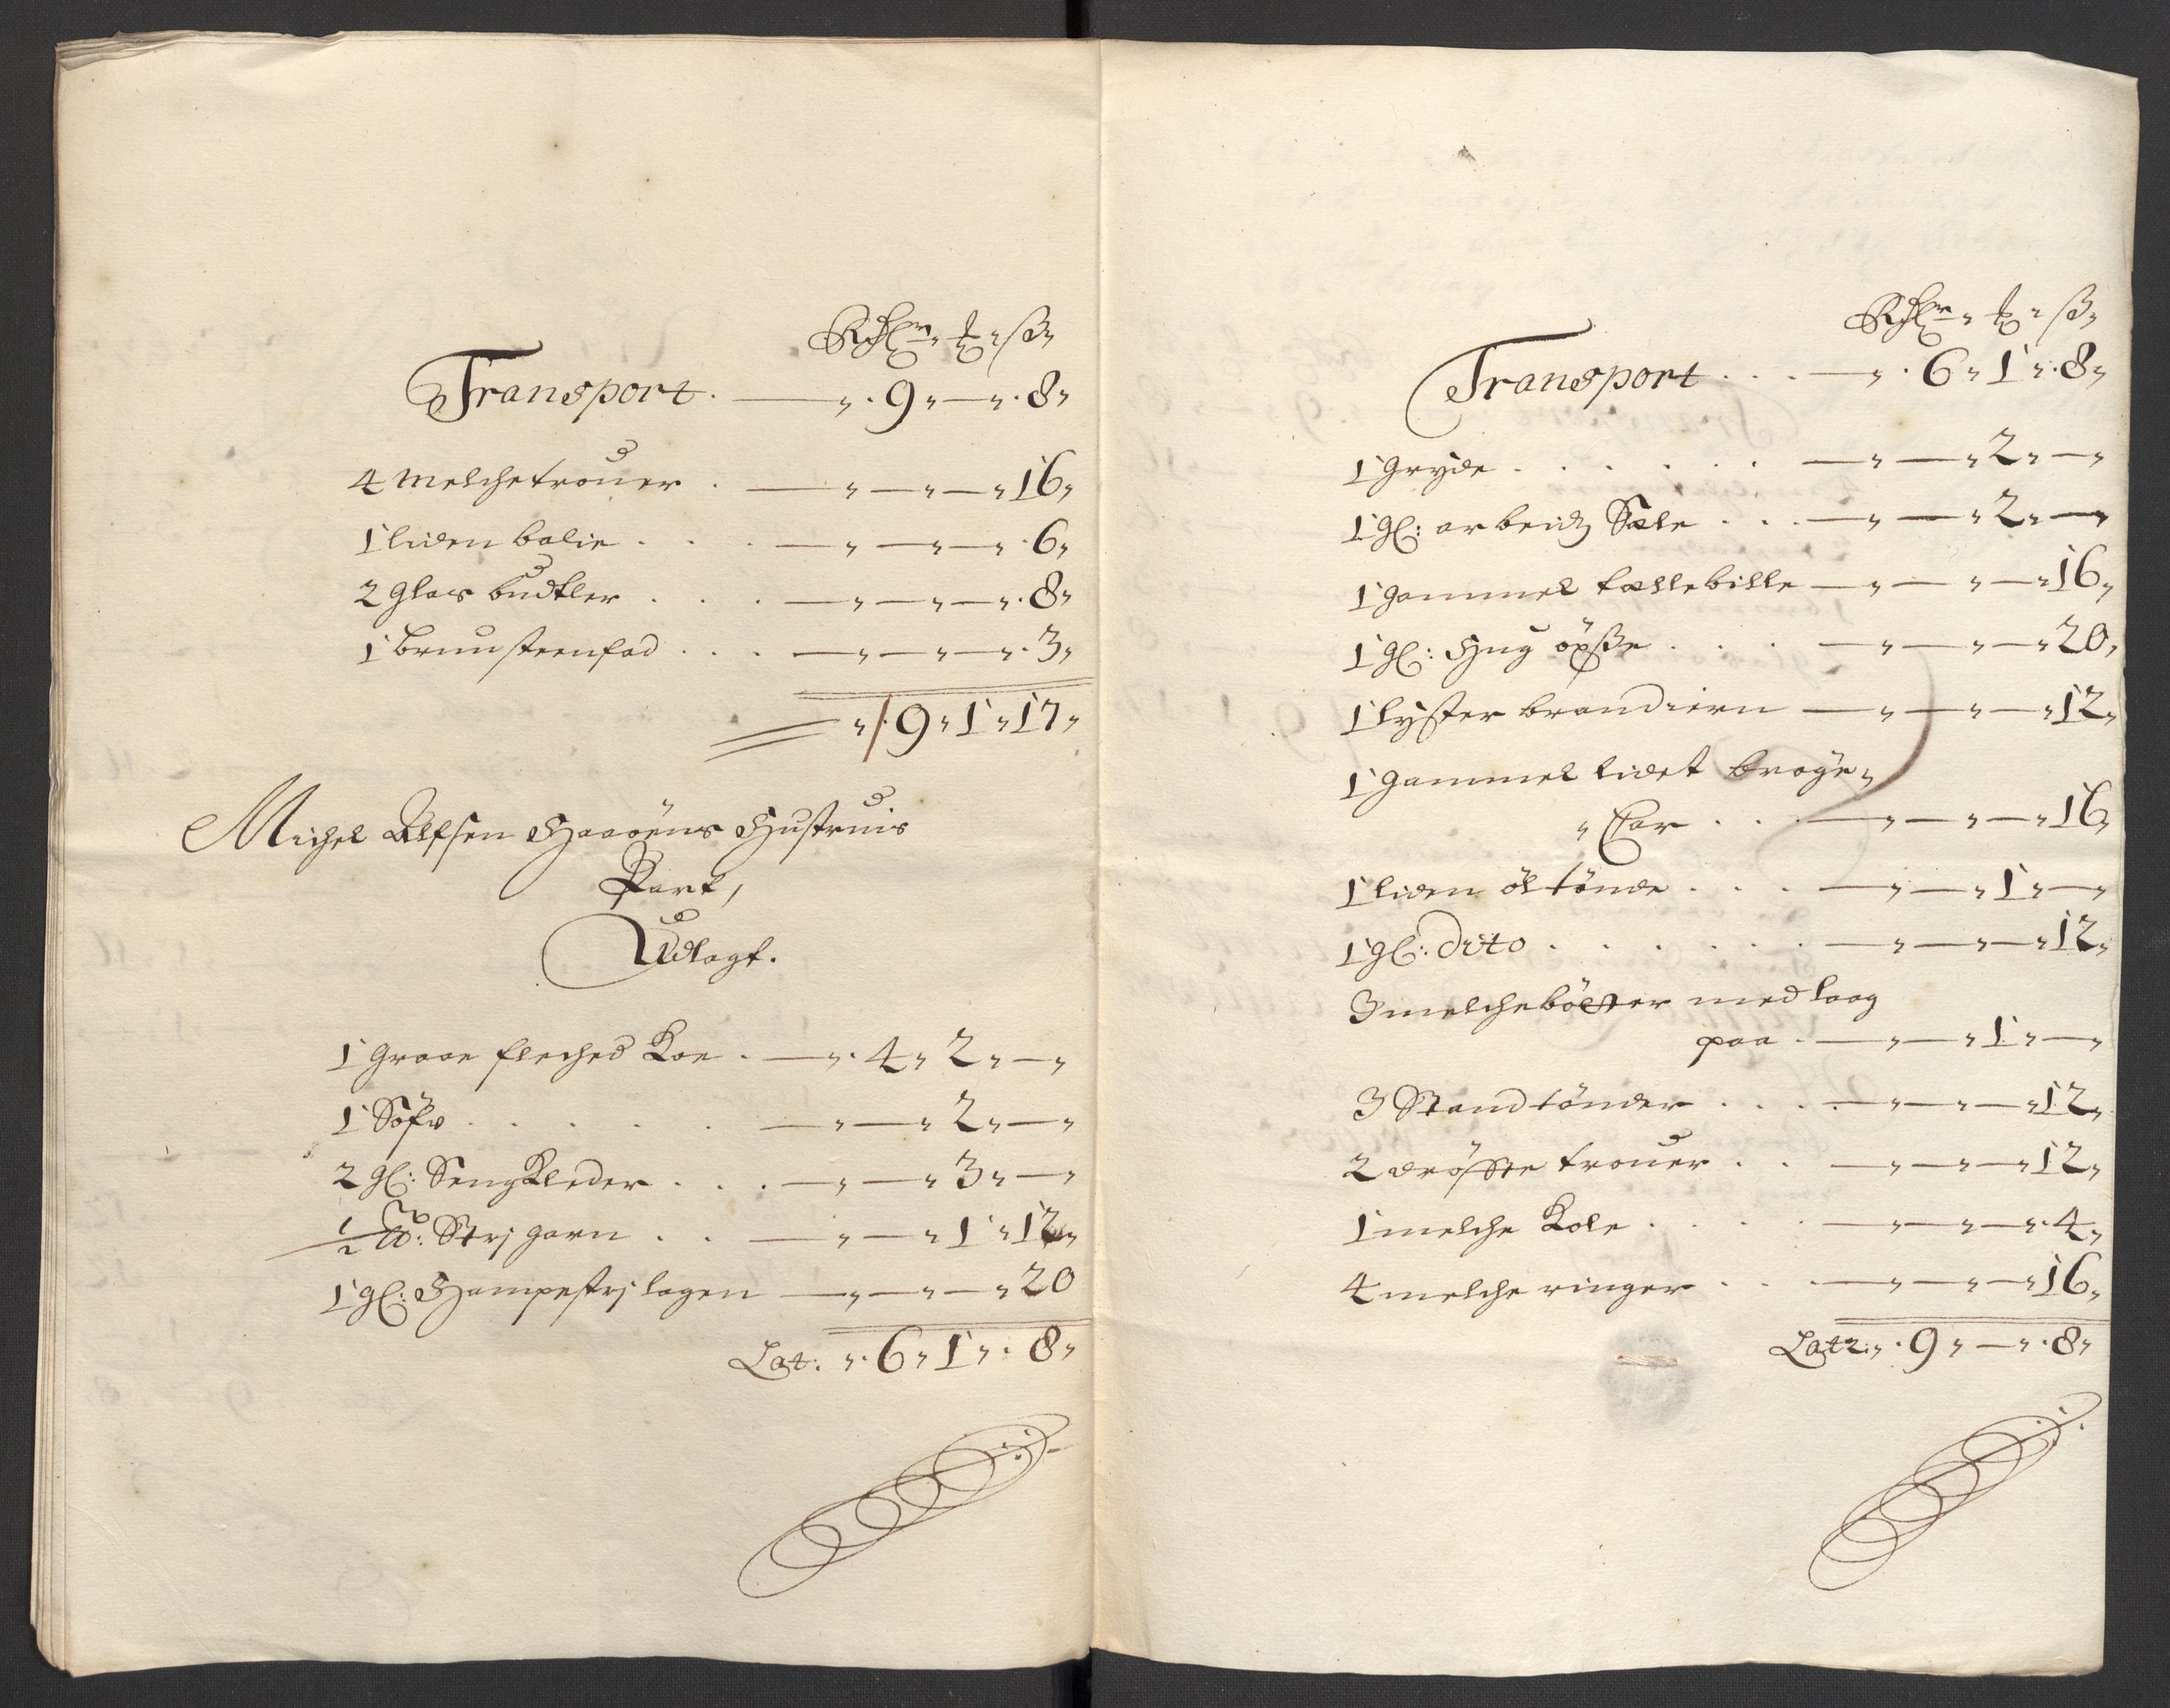 Rdlr " ₰ " ß "
Transport . — " . 9 " — " . 8 "
4 melchetrouer . — " — " — " 16 "
1 liden balie . . . — " — " — " . 6 "
2 glas budtler . . . — " — " — " . 8 "
1 bruusteenfad . . . — " — " — " . 3 "
" / 9 " 1 " 17 "
Michel Olfsen Haaöens Hustruis
Part,
Udlagt.
1 graae fleched Koe . — " . 4 " 2 " — "
1 Söfv . . . . . — " — " 2 " — "
2 gl: Sengkleder . . . — " — " 3 " — "
1/2 ℔: Strj garn . . — " — " 1 " 12 "
1 gl: Hampestrj lagen — " — " — " 20
Lat: " . 6 " 1 " . 8 "
Rdlr " ₰ " ß "
Transport . . . — " . 6 " 1 " . 8 "
1 gryde . . . . . — " — " 2 " — "
1 gl: arbeidz Sæle . . . — " — " 2 " — "
1 gammel tællebille — " — " — " 16 "
1 gl: Hug öxße . . . — " — " — " 20 "
1 lyster brandiern — " — " — " 12 "
1 gammel lidet brøge "
" Kar . . . — " — " — " 16 "
1 liden öltönde . . . — " — " 1 " — "
1 gl: dito . . . . . — " — " — " 12 "
3 melchebötter med laag
paa . — " — " 1 " — "
3 Standtönder . . . . — " — " — " 12 "
2 dröfste trouer . . — " — " — " 12 "
1 melche Kole . . . . — " — " — " . 4 "
4 melche ringer . . . — " — " — " 16 "
Latr: " . 9 " — " . 8 "